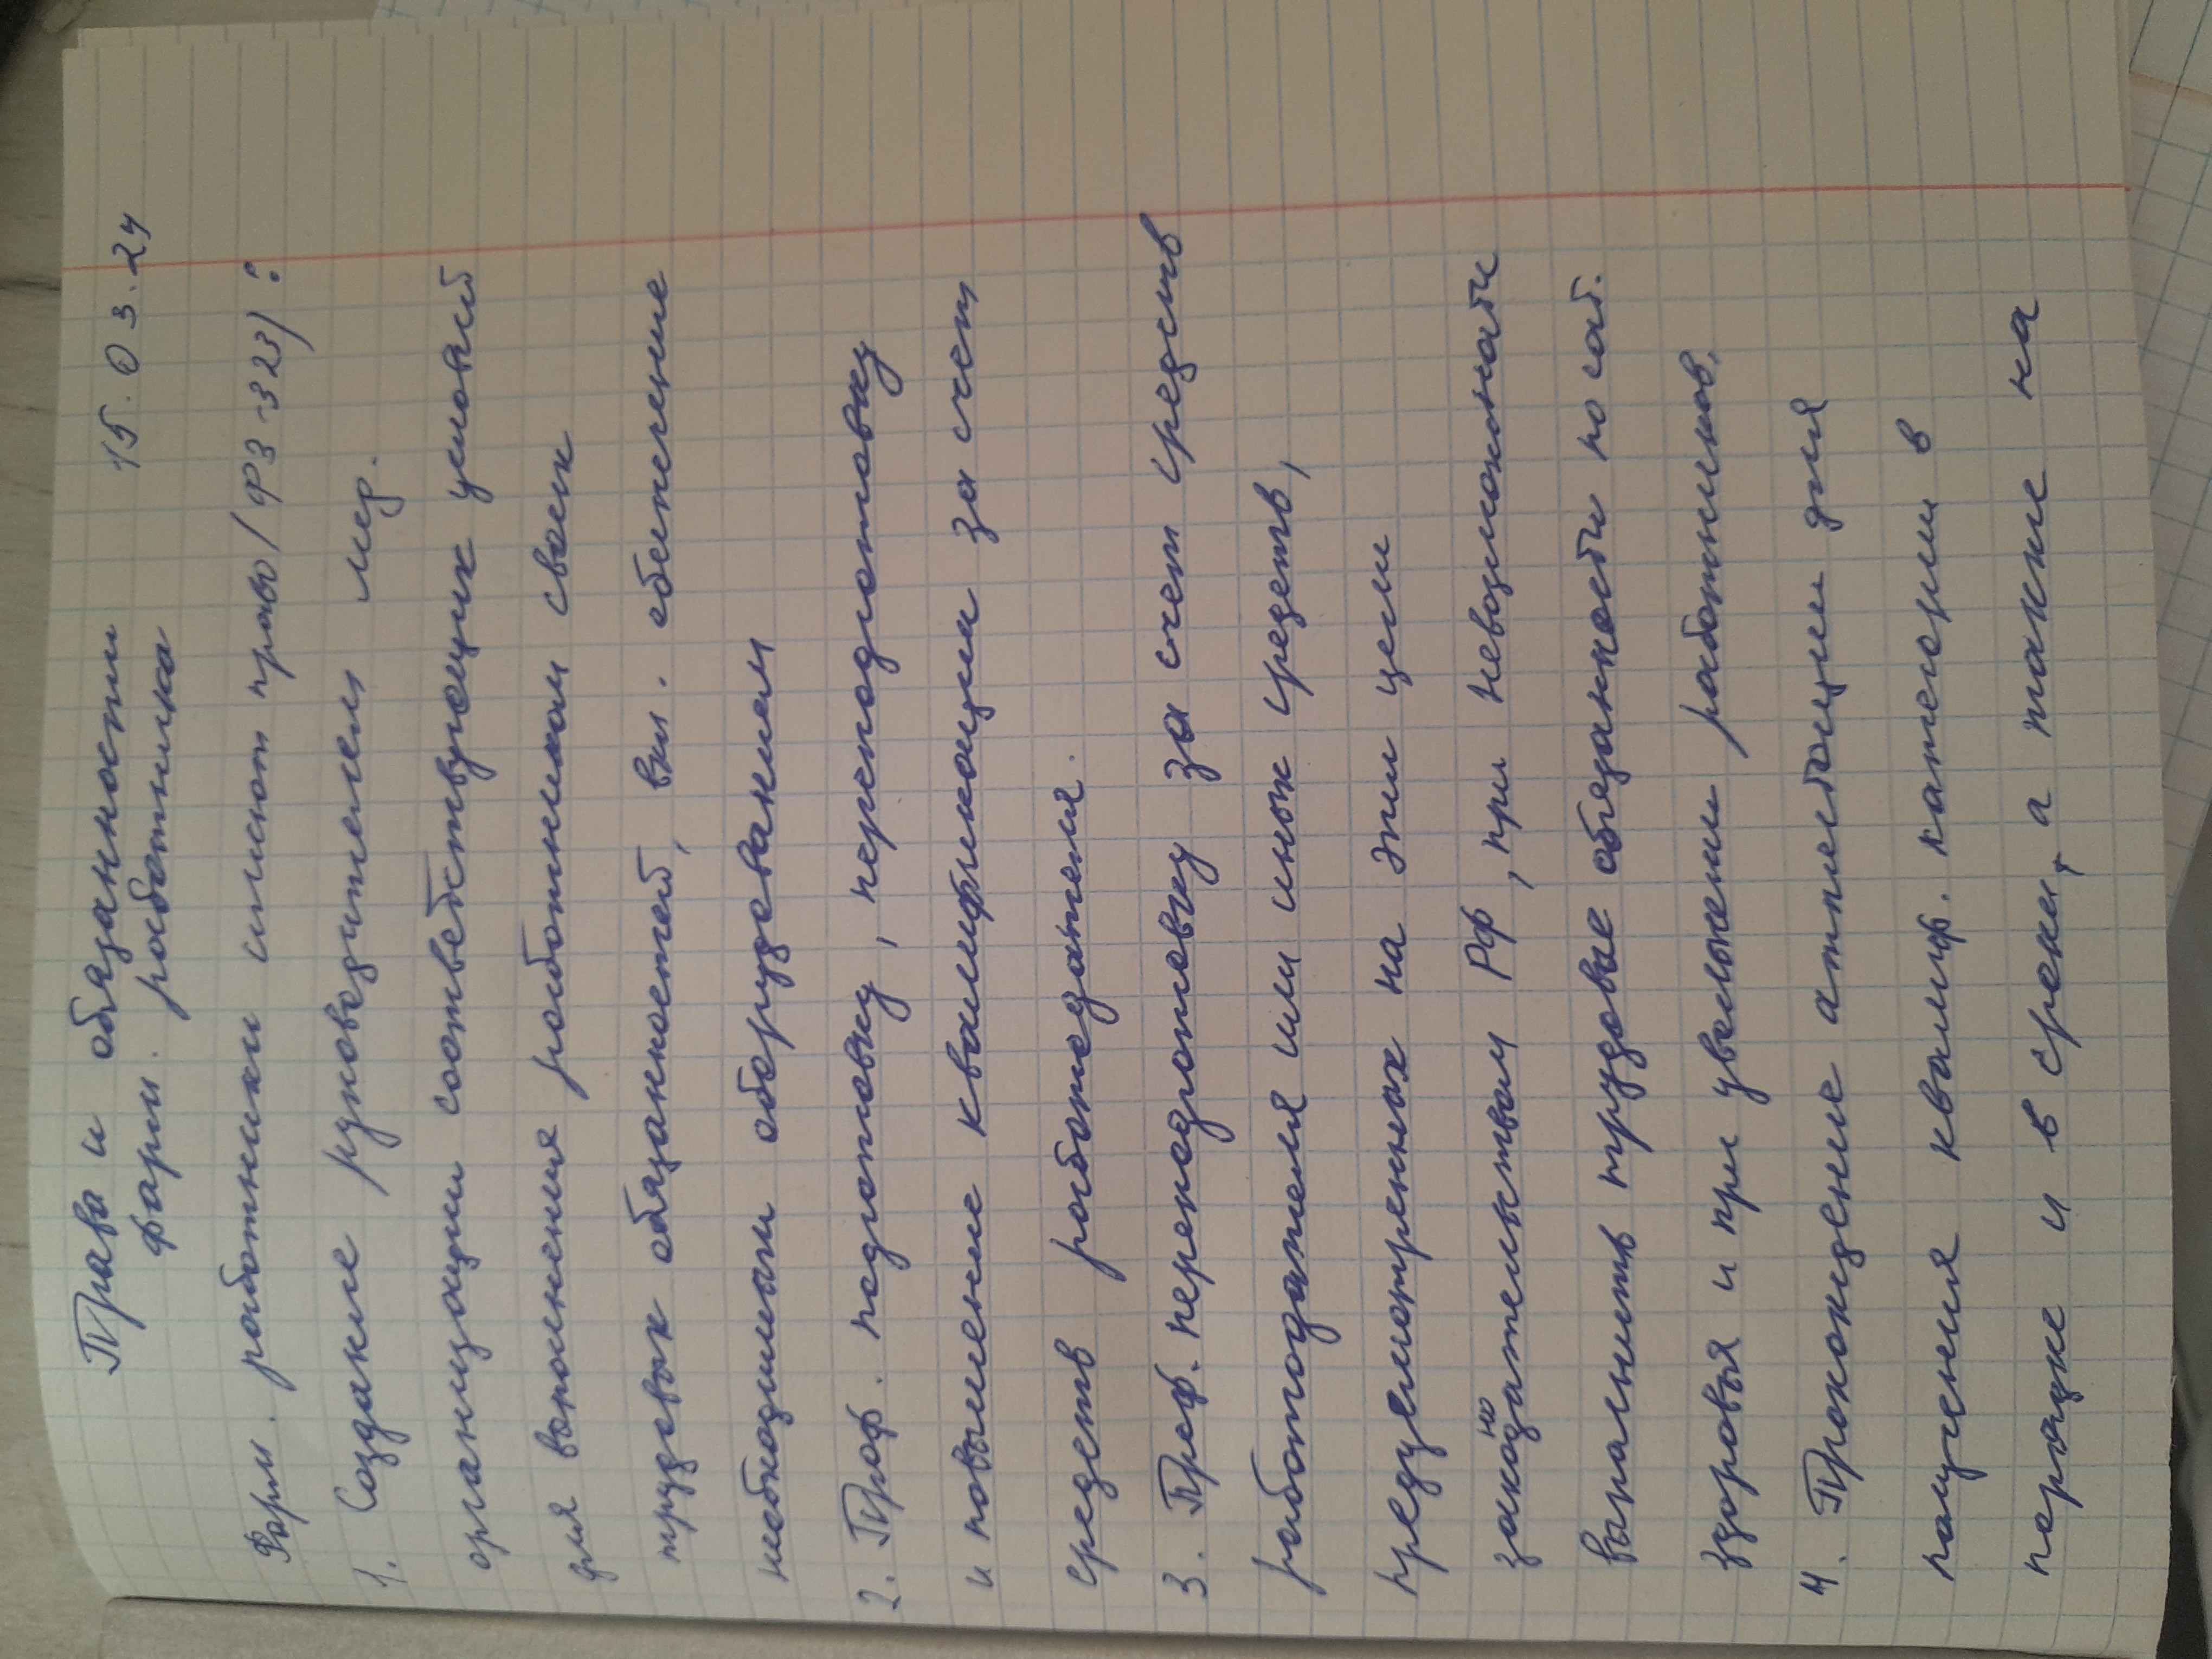 Права и обязанности 15.03.24
фарм. работника
Фарм. работники имеют право (ФЗ-323):
1. Создание руководителем мед.
организации соответствующих условий
для выполнения работником своих
трудовых обязанностей, вкл. обеспечение
необходимым оборудованием
2. Проф. подготовку, переподготовку
и повышение квалификации за счет
средств работодателя.
3. Проф. переподготовку за счет средств
работодателя или иных средств,
предусмотренных на эти цели
законодательством РФ, при невозможности
выполнять трудовые обязанности по сост.
здоровья и при увольнении работников.
4. Прохождение аттестации для
получения квалиф. категории в
порядке и в сроки, а также на